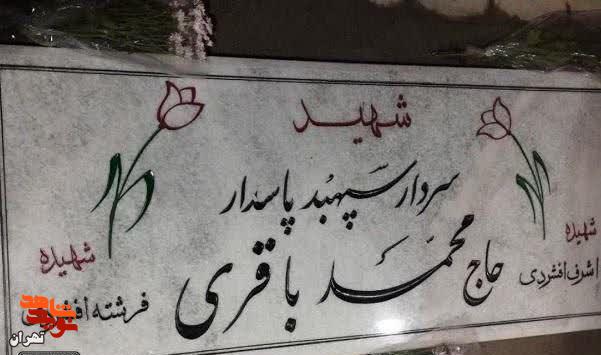 شهید
سردار سپهبد پاسدار
حاج محمد باقری
شهیده
اشرف افشردی
شهیده
فرشته افشردی
نوید شاهد
تهران